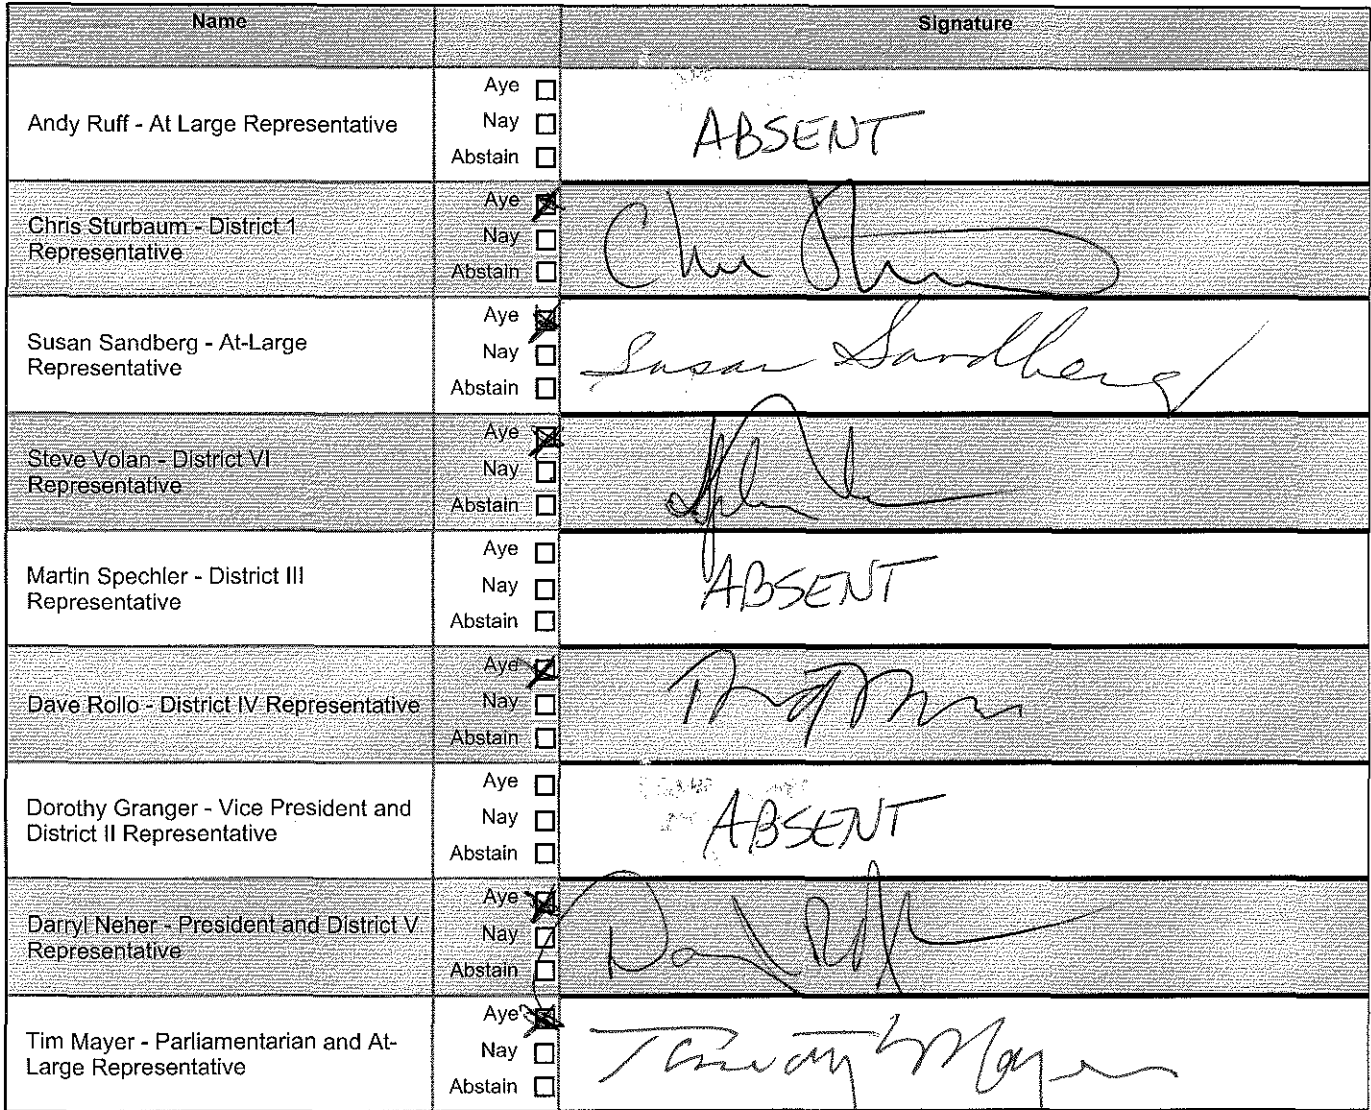 Name Signature
Aye
Andy Ruff - At Large Representative Nay ABSENT
Abstain
Aye
Chris Sturbaum - District 1
Representative
Nay
Abstain
Aye
Susan Sandberg - At-Large
Representative
Nay Susan Sandberg
Abstain
Aye
Steve Volan - District VI
Representative
Nay
Abstain
Aye
Martin Spechler - District III
Representative
Nay ABSENT
Abstain
Aye
Dave Rollo - District IV Representative Nay
Abstain
Aye
Dorothy Granger - Vice President and
District II Representative
Nay ABSENT
Abstain
Aye
Darryl Neher - President and District V
Representative
Nay
Abstain
Aye
Tim Mayer - Parliamentarian and At-
Large Representative
Nay Timothy Mayer
Abstain